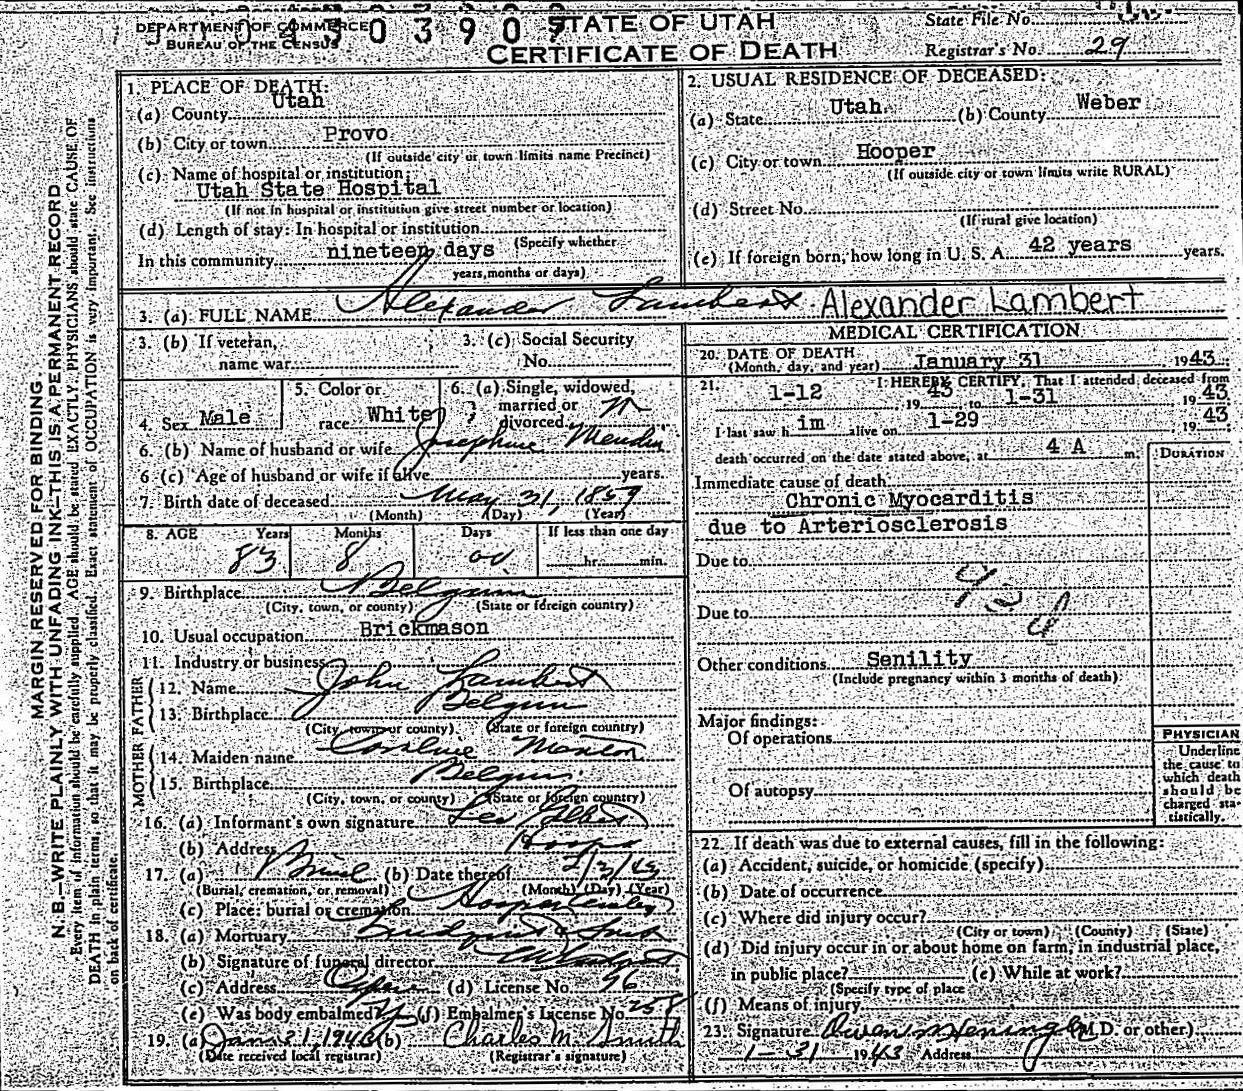 DEPARTMENT OF COMMERCE
BUREAU OF THE CENSUS
STATE OF UTAH
CERTIFICATE OF DEATH
State File No.
Registrar's No. 29
MARGIN RESERVED FOR BINDING.
N. B.—WRITE PLAINLY WITH UNFADING INK—THIS IS A PERMANENT RECORD
Every item of information should be carefully supplied. AGE should be stated EXACTLY. PHYSICIANS should state CAUSE OF
DEATH in plain terms, so that it may be properly classified. Exact statement of OCCUPATION is very important. See instructions
on back of certificate.
1. PLACE OF DEATH:
(a) County Utah
(b) City or town Provo
(If outside city or town limits name Precinct)
(c) Name of hospital or institution:
Utah State Hospital
(If not in hospital or institution give street number or location)
(d) Length of stay: In hospital or institution
(Specify whether
In this community nineteen days
years, months or days)
2. USUAL RESIDENCE OF DECEASED:
(a) State Utah (b) County Weber
(c) City or town Hooper
(If outside city or town limits write RURAL)
(d) Street No.
(If rural give location)
(e) If foreign born, how long in U. S. A. 42 years years.
3. (a) FULL NAME Alexander Lambert Alexander Lambert
3. (b) If veteran, name war
3. (c) Social Security No.
4. Sex Male
5. Color or race White
6. (a) Single, widowed, married or divorced M
6. (b) Name of husband or wife Josephine
6 (c) Age of husband or wife if alive years.
7. Birth date of deceased May 31, 1859
(Month) (Day) (Year)
8. AGE Years Months Days If less than one day
83 8 00 hr. min.
9. Birthplace Belgium
(City, town, or county) (State or foreign country)
10. Usual occupation Brickmason
11. Industry or business
FATHER
12. Name John Lambert
13. Birthplace Belgium
(City, town or county) (State or foreign country)
MOTHER
14. Maiden name
15. Birthplace Belgium
(City, town, or county) (State or foreign country)
16. (a) Informant's own signature Leo
(b) Address Hooper
17. (a) Burial (b) Date thereof 2/3/43
(Burial, cremation, or removal) (Month) (Day) (Year)
(c) Place: burial or cremation Hooper
18. (a) Mortuary Lindquist & Sons
(b) Signature of funeral director
(c) Address Ogden (d) License No. 96
(e) Was body embalmed? (f) Embalmer's License No. 258
19. (a) Jan. 31, 1943 (b) Charles M. Smith
(Date received local registrar) (Registrar's signature)
MEDICAL CERTIFICATION
20. DATE OF DEATH January 31 1943
(Month, day, and year)
21. I HEREBY CERTIFY, That I attended deceased from
1-12 1943 to 1-31 1943
I last saw him alive on 1-29 1943
death occurred on the date stated above, at 4 A m.
DURATION
Immediate cause of death
Chronic Myocarditis
due to Arteriosclerosis
Due to
93d
Due to
Other conditions Senility
(Include pregnancy within 3 months of death)
Major findings:
Of operations
Of autopsy
PHYSICIAN
Underline
the cause to
which death
should be
charged sta-
tistically.
22. If death was due to external causes, fill in the following:
(a) Accident, suicide, or homicide (specify)
(b) Date of occurrence
(c) Where did injury occur?
(City or town) (County) (State)
(d) Did injury occur in or about home on farm, in industrial place,
in public place? (e) While at work?
(Specify type of place
(f) Means of injury
23. Signature Owen (M.D. or other)
1-31 1943 Address